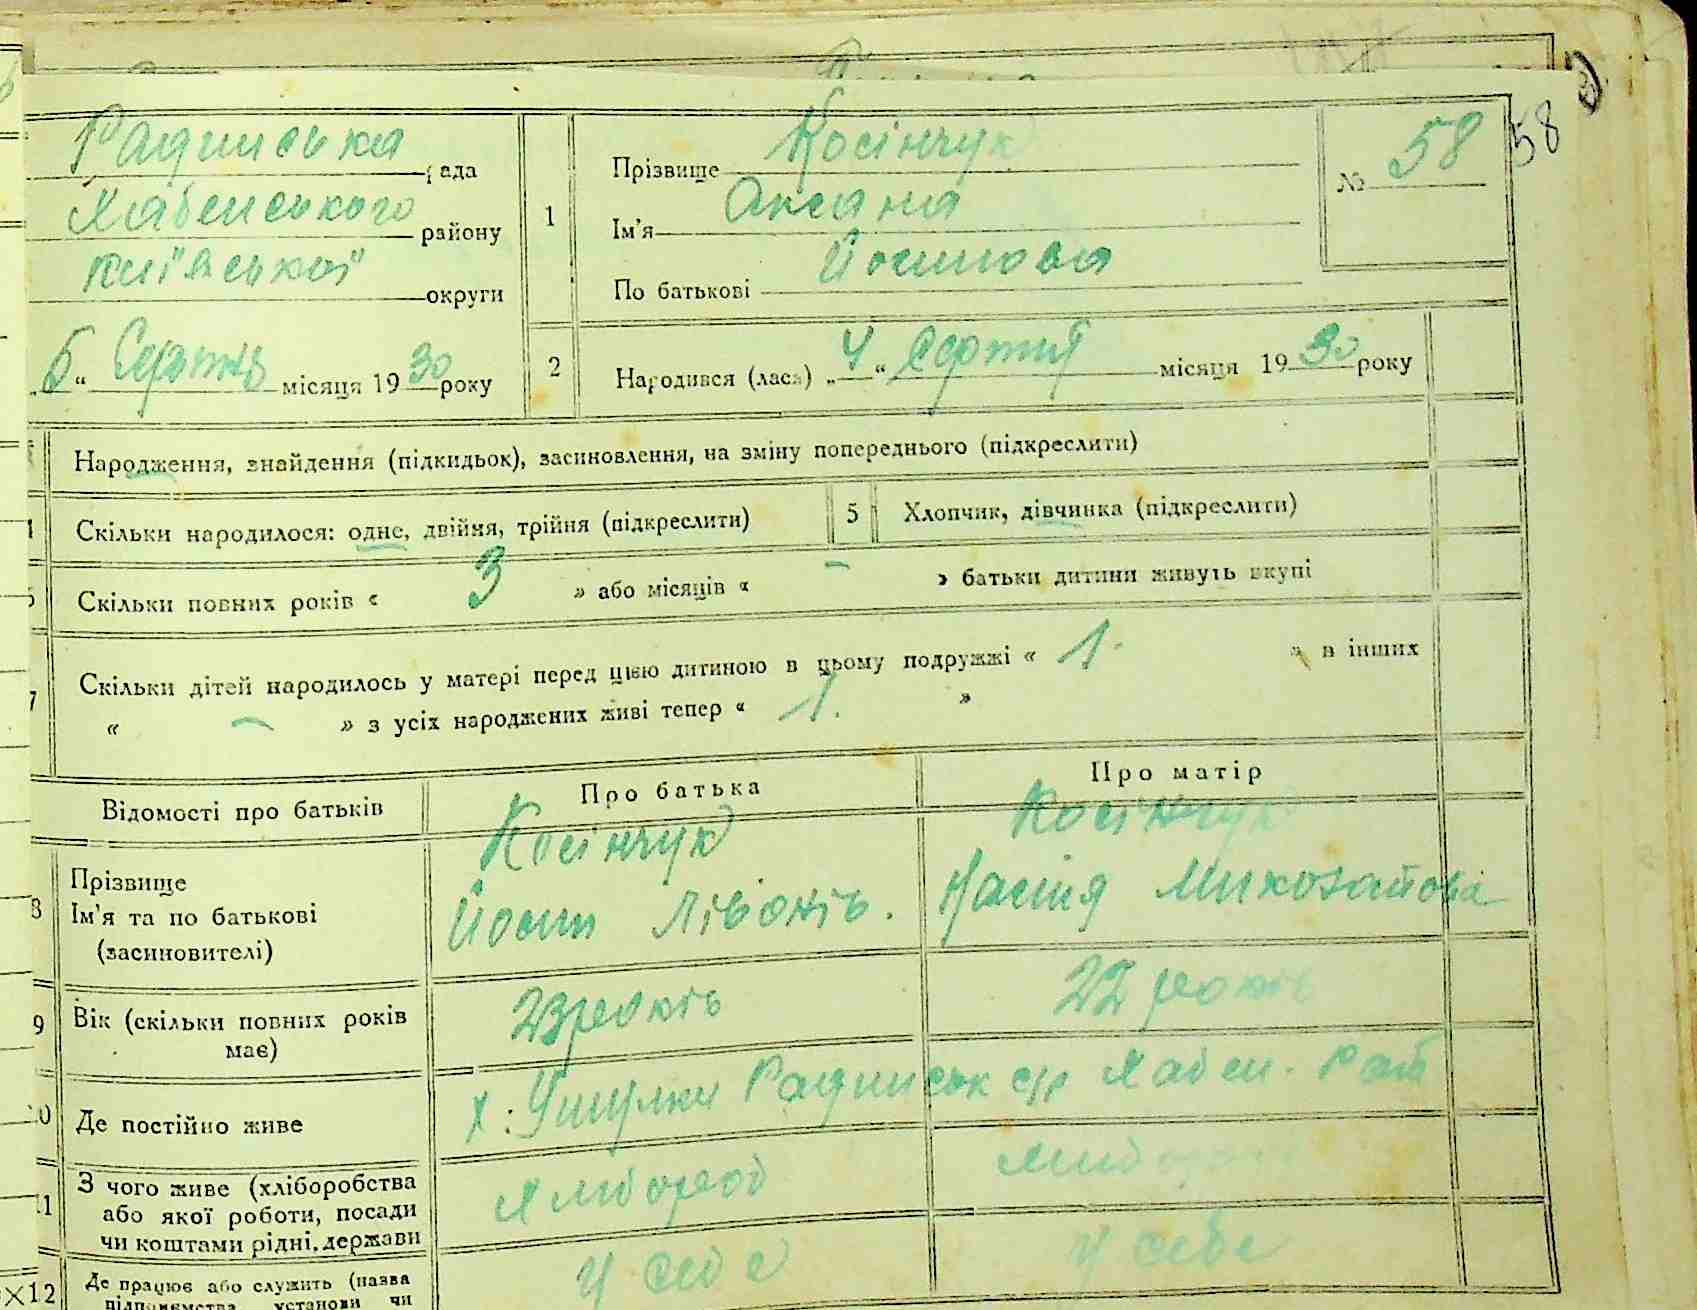 Радинська рада
Хабенського району
Київської округи
„6“ Серпня місяця 1930 року
1
Прізвище Косінчук
Ім'я Оксана
По батькові Йосипова
№ 58
58
2
Народився (лася) „4“ Серпня місяця 1930 року
Народження, знайдення (підкидьок), засиновлення, на зміну попереднього (підкреслити)
Скільки народилося: одне, двійня, трійня (підкреслити)
5
Хлопчик, дівчинка (підкреслити)
Скільки повних років « 3 » або місяців « - » батьки дитини живуть вкупі
7
Скільки дітей народилось у матері перед цією дитиною в цьому подружжі « 1. » в інших
« - » з усіх народжених живі тепер « 1. »
Відомості про батьків
Про батька
Про матір
8
Прізвище
Ім'я та по батькові
(засиновителі)
Косінчук
Йосип Лівонів.
Косінчук
Насія Миколайова
9
Вік (скільки повних років
має)
23 років
22 років
Де постійно живе
х: Радинськ с/р Хабен.
З чого живе (хліборобства
або якої роботи, посади
чи коштами рідні, держави
Хлібороб
12
Де працює або служить (назва
підприємства, установи чи
У себе
У себе